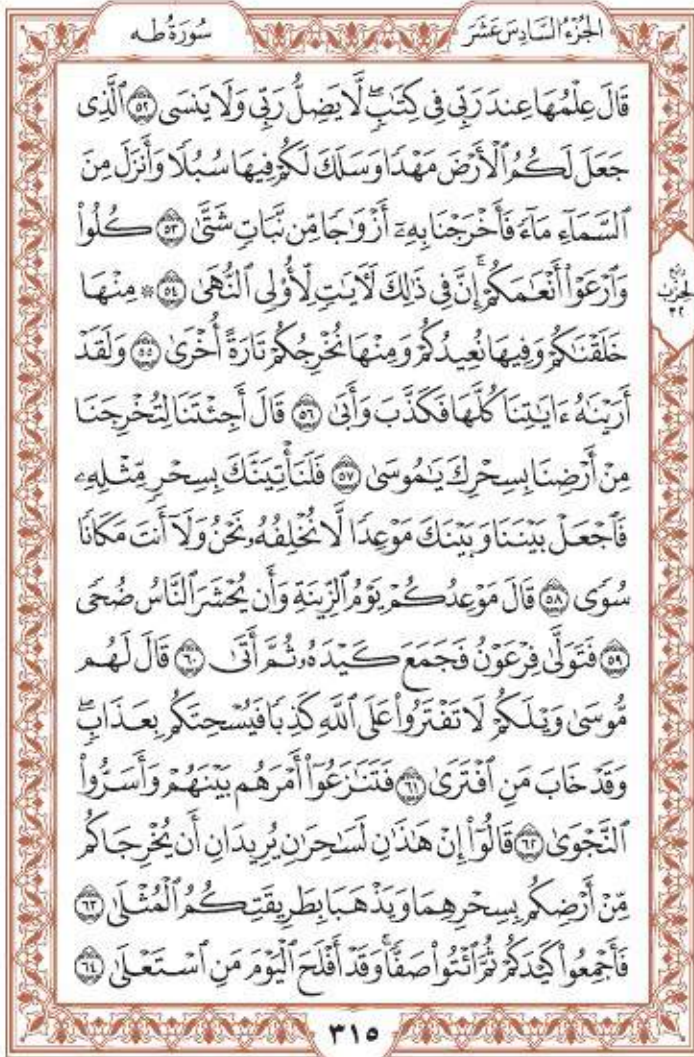 الجُزْءُ السَّادِسَ عَشَرَ
سُورَةُ طه
قَالَ عِلْمُهَا عِندَ رَبِّي فِي كِتَٰبٖۖ لَّا يَضِلُّ رَبِّي وَلَا يَنسَى ٥٢ ٱلَّذِي
جَعَلَ لَكُمُ ٱلْأَرْضَ مَهْدًا وَسَلَكَ لَكُمْ فِيهَا سُبُلًا وَأَنزَلَ مِنَ
ٱلسَّمَآءِ مَآءً فَأَخْرَجْنَا بِهِۦٓ أَزْوَٰجًا مِّن نَّبَاتٍ شَتَّىٰ ٥٣ كُلُوا۟
وَٱرْعَوْا۟ أَنْعَٰمَكُمْۚ إِنَّ فِي ذَٰلِكَ لَأٓيَٰتٍ لِّأُو۟لِي ٱلنُّهَىٰ ٥٤ ۞ مِنْهَا
رُبْعُ
الحِزْبِ
٣٢
خَلَقْنَٰكُمْ وَفِيهَا نُعِيدُكُمْ وَمِنْهَا نُخْرِجُكُمْ تَارَةً أُخْرَىٰ ٥٥ وَلَقَدْ
أَرَيْنَٰهُ ءَايَٰتِنَا كُلَّهَا فَكَذَّبَ وَأَبَىٰ ٥٦ قَالَ أَجِئْتَنَا لِتُخْرِجَنَا
مِنْ أَرْضِنَا بِسِحْرِكَ يَٰمُوسَىٰ ٥٧ فَلَنَأْتِيَنَّكَ بِسِحْرٍ مِّثْلِهِۦ
فَٱجْعَلْ بَيْنَنَا وَبَيْنَكَ مَوْعِدًا لَّا نُخْلِفُهُۥ نَحْنُ وَلَآ أَنتَ مَكَانًا
سُوًى ٥٨ قَالَ مَوْعِدُكُمْ يَوْمُ ٱلزِّينَةِ وَأَن يُحْشَرَ ٱلنَّاسُ ضُحًى
٥٩ فَتَوَلَّىٰ فِرْعَوْنُ فَجَمَعَ كَيْدَهُۥ ثُمَّ أَتَىٰ ٦٠ قَالَ لَهُم
مُّوسَىٰ وَيْلَكُمْ لَا تَفْتَرُوا۟ عَلَى ٱللَّهِ كَذِبًا فَيُسْحِتَكُم بِعَذَابٍۖ
وَقَدْ خَابَ مَنِ ٱفْتَرَىٰ ٦١ فَتَنَٰزَعُوٓا۟ أَمْرَهُم بَيْنَهُمْ وَأَسَرُّوا۟
ٱلنَّجْوَىٰ ٦٢ قَالُوٓا۟ إِنْ هَٰذَٰنِ لَسَٰحِرَٰنِ يُرِيدَانِ أَن يُخْرِجَاكُم
مِّنْ أَرْضِكُم بِسِحْرِهِمَا وَيَذْهَبَا بِطَرِيقَتِكُمُ ٱلْمُثْلَىٰ ٦٣
فَأَجْمِعُوا۟ كَيْدَكُمْ ثُمَّ ٱئْتُوا۟ صَفًّاۚ وَقَدْ أَفْلَحَ ٱلْيَوْمَ مَنِ ٱسْتَعْلَىٰ ٦٤
٣١٥